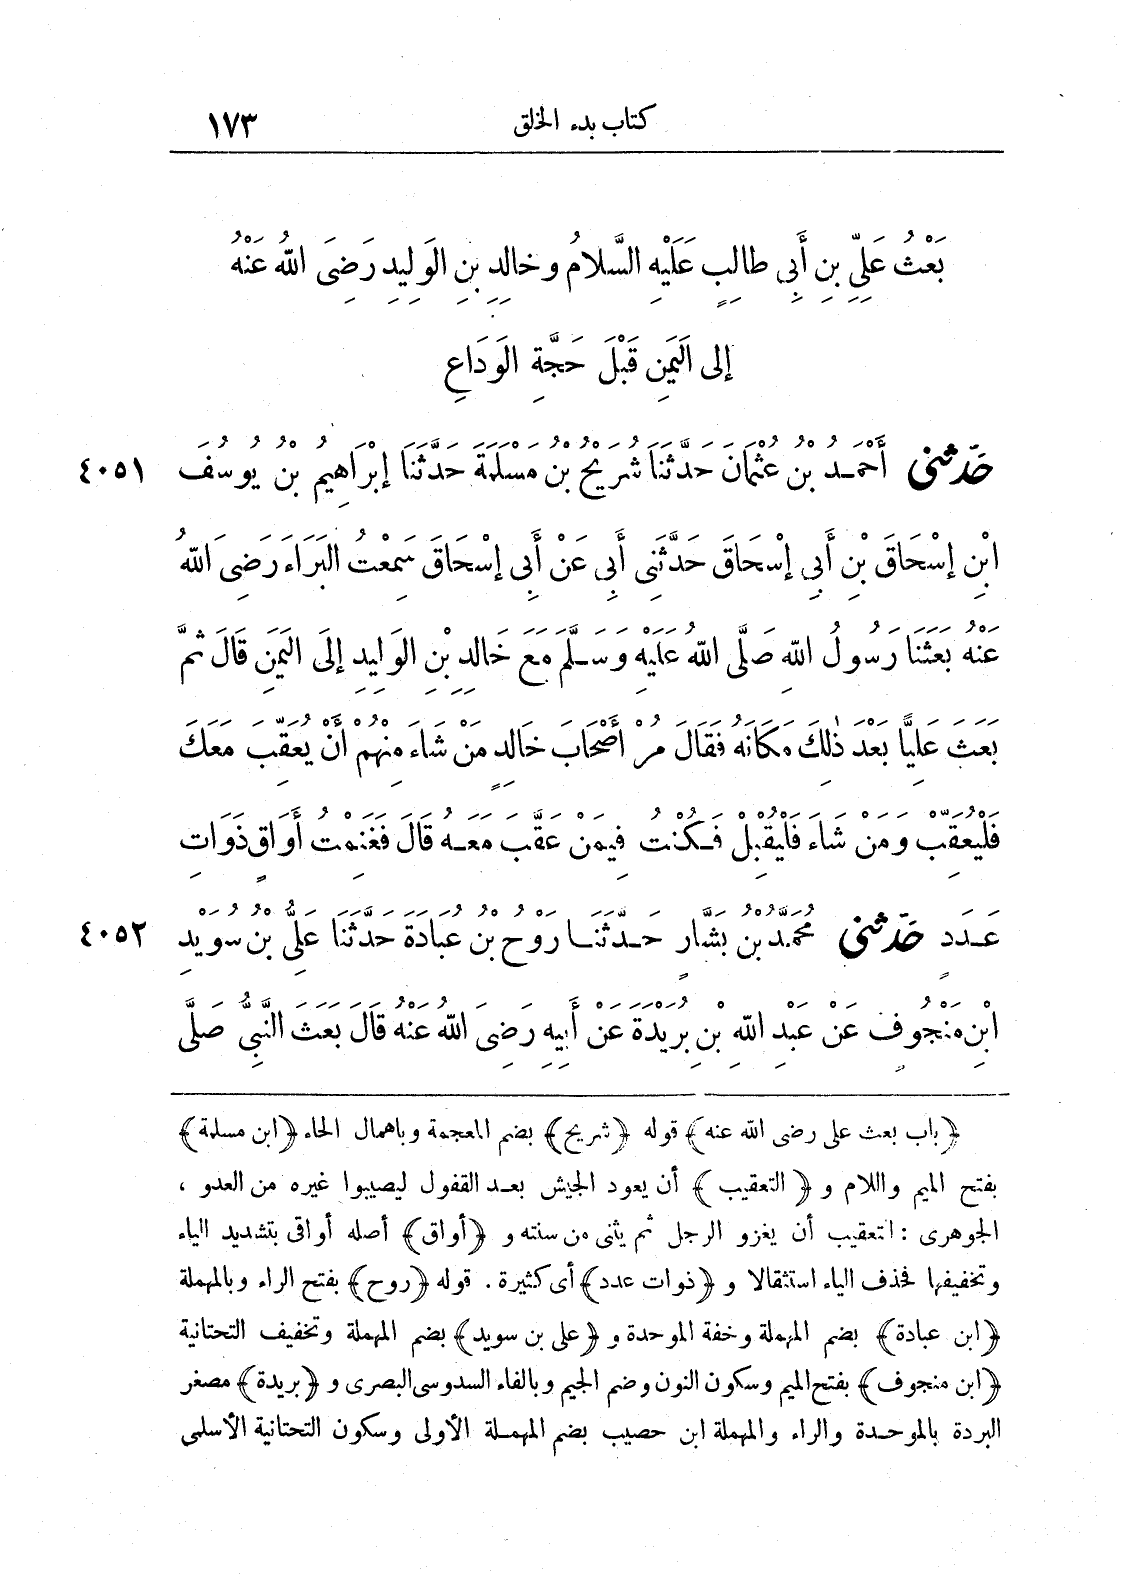 كتاب بدء الخلق ١٧٣
بَعْثُ عَلِيِّ بنِ أَبِى طالِبٍ عَلَيْهِ السَّلامُ وخالِدِ بنِ الوَلِيدِ رَضِىَ اللهُ عَنْهُ
إلى اليَمَنِ قَبْلَ حَجَّةِ الوَدَاعِ
حَدّثنى أَحْمَدُ بْنُ عُثْمانَ حَدَّثَنَا شُرَيْحُ بْنُ مَسْلَمَةَ حَدَّثَنَا إبْرَاهِيمُ بْنُ يُوسُفَ ٤٠٥١
ابْنِ إسْحَاقَ بْنِ أَبِى إسْحَاقَ حَدَّثَنِى أَبِى عَنْ أَبِى إسْحَاقَ سَمِعْتُ البَرَاءَ رَضِىَ اللهُ
عَنْهُ بَعَثَنَا رَسُولُ اللهِ صَلَّى اللهُ عَلَيْهِ وَسَلَّمَ مَعَ خَالِدِ بْنِ الوَلِيدِ إلَى اليَمَنِ قَالَ ثُمَّ
بَعَثَ عَلِيًّا بَعْدَ ذٰلِكَ مَكَانَهُ فَقَالَ مُرْ أَصْحَابَ خَالِدٍ مَنْ شَاءَ مِنْهُمْ أَنْ يُعَقِّبَ مَعَكَ
فَلْيُعَقِّبْ وَمَنْ شَاءَ فَلْيُقْبِلْ فَكُنْتُ فِيمَنْ عَقَّبَ مَعَهُ قَالَ فَغَنِمْتُ أَوَاقٍ ذَوَاتِ
عَدَدٍ حَدّثنى مُحَمَّدُ بْنُ بَشَّارٍ حَدَّثَنَا رَوْحُ بْنُ عُبَادَةَ حَدَّثَنَا عَلِىُّ بْنُ سُوَيْدِ ٤٠٥٢
ابْنِ مَنْجُوفٍ عَنْ عَبْدِ اللهِ بْنِ بُرَيْدَةَ عَنْ أَبِيهِ رَضِىَ اللهُ عَنْهُ قَالَ بَعَثَ النَّبِىُّ صَلَّى
﴿باب بعث على رضى الله عنه﴾ قوله ﴿شريح﴾ بضم المعجمة وباهمال الحاء ﴿ابن مسلمة﴾
بفتح الميم واللام و ﴿التعقيب﴾ أن يعود الجيش بعد القفول ليصيبوا غيره من العدو ،
الجوهرى : التعقيب أن يغزو الرجل ثم يثنى من سنته و ﴿أواق﴾ أصله أواقى بتشديد الياء
وتخفيفها فحذف الياء استثقالا و ﴿ذوات عدد﴾ أى كثيرة . قوله ﴿روح﴾ بفتح الراء وبالمهملة
﴿ابن عبادة﴾ بضم المهملة وخفة الموحدة و ﴿على بن سويد﴾ بضم المهملة وتخفيف التحتانية
﴿ابن منجوف﴾ بفتح الميم وسكون النون وضم الجيم وبالفاء السدوسى البصرى و ﴿بريدة﴾ مصغر
البردة بالموحدة والراء والمهملة ابن حصيب بضم المهملة الأولى وسكون التحتانية الأسلمى